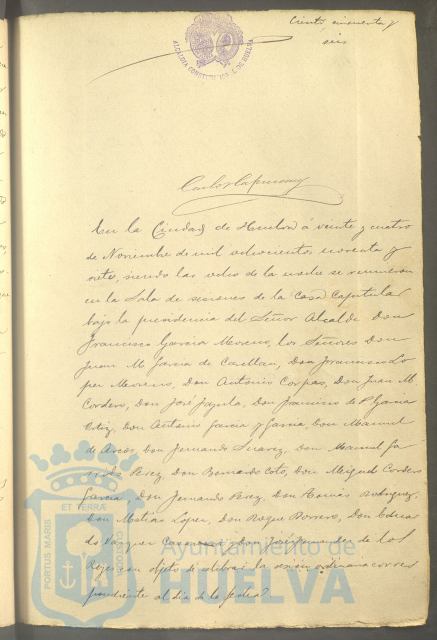 Ciento cincuenta y
seis
ALCALDIA CONSTITUCIONAL DE HUELVA
En la Ciudad de Huelva á veinte y cuatro
de Noviembre de mil ochocientos noventa y
siete, siendo las ocho de la noche se reunieron
en la Sala de sesiones de la Casa Capitular
bajo la presidencia del Señor Alcalde Don
Francisco García Morales, los Señores Don
Juan M. García de Don Francisco Lo
pez Moreno, Don Antonio Corpas, Don Juan M.
Cordero, Don José Don Francisco de P. García
Ortiz, Don Antonio García y García, Don Manuel
de Arcos, Don Fernando Suarez, Don Manuel
Perez, Don Bernardo Coto, Don Miguel Cordero
García, Don Fernando Perez, Don Tomás Rodriguez,
Don Matias Lopez, Don Roque Borrero, Don Eduar
do Vazquez Don José de los
Reyes con objeto de celebrar la sesion ordinaria corres
pondiente al dia de la fecha.
PORTUS MARIS ET TERRÆ CUSTODIA
Ayuntamiento de
HUELVA